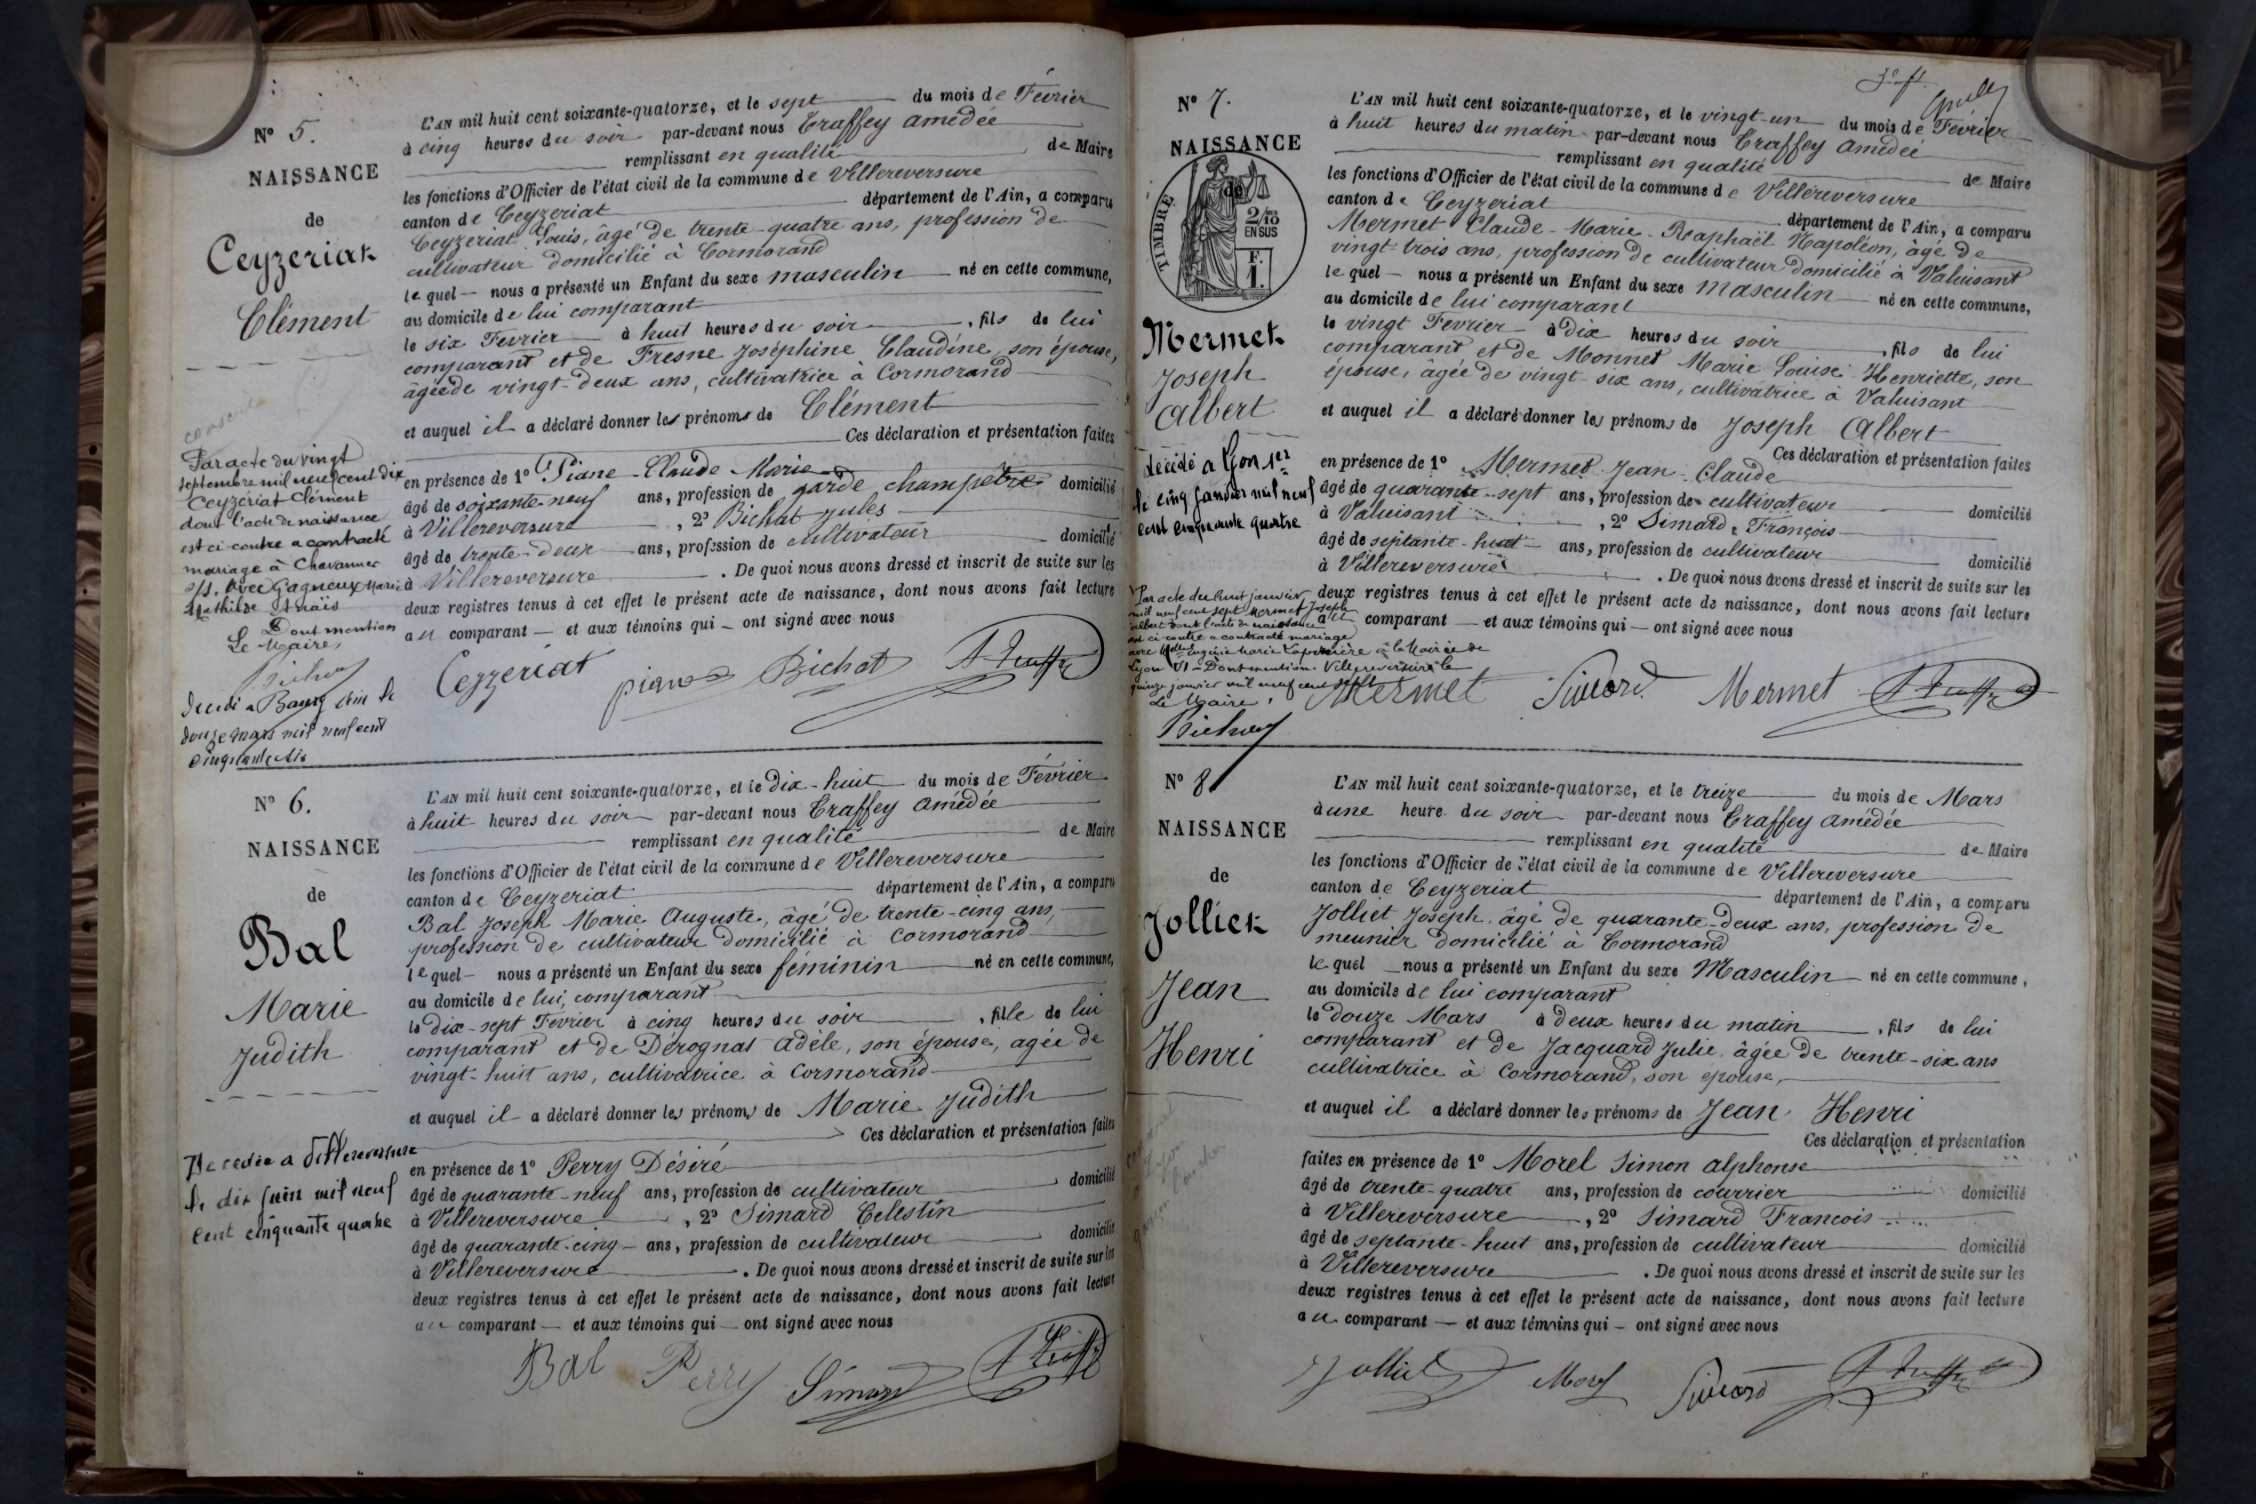 N° 5.
NAISSANCE
de
Ceyzeriat
Clément
Par acte du vingt
septembre mil neuf cent dix
Ceyzeriat Clément
dont l'acte de naissance
est ci-contre a contracté
mariage à Chavannes
s/s. avec Gagneux Marie
Mathilde Anaïs
Dont mention
Le Maire,
Décédé a Bourg Ain le
douze mars mil neuf cent
cinquante six
L'AN mil huit cent soixante-quatorze, et le sept du mois de Février
à cinq heures du soir par-devant nous Traffey Amédée
remplissant en qualité de Maire
les fonctions d'Officier de l'état civil de la commune de Villereversure
canton de Ceyzeriat département de l'Ain, a comparu
Ceyzeriat Louis, âgé de trente-quatre ans, profession de
cultivateur domicilié à Cormorand
lequel — nous a présenté un Enfant du sexe masculin né en cette commune,
au domicile de lui comparant
le six Fevrier à huit heures du soir, fils de lui
comparant et de Fresne Joséphine Claudine, son épouse,
âgée de vingt-deux ans, cultivatrice à Cormorand
et auquel il a déclaré donner les prénoms de Clément
Ces déclaration et présentation faites
en présence de 1° Piane Claude Marie
âgé de soixante-neuf ans, profession de garde champêtre domicilié
à Villereversure, 2° Bichat Jules
âgé de trente-deux ans, profession de cultivateur domicilié
à Villereversure. De quoi nous avons dressé et inscrit de suite sur les
deux registres tenus à cet effet le présent acte de naissance, dont nous avons fait lecture
au comparant — et aux témoins qui — ont signé avec nous
Ceyzeriat piane Bichat A Traffey
N° 6.
NAISSANCE
de
Bal
Marie
Judith
Décédée a Villereversure
le dix juin mil neuf
cent cinquante quatre
L'AN mil huit cent soixante-quatorze, et le dix-huit du mois de Février
à huit heures du soir par-devant nous Traffey Amédée
remplissant en qualité de Maire
les fonctions d'Officier de l'état civil de la commune de Villereversure
canton de Ceyzeriat département de l'Ain, a comparu
Bal Joseph Marie Auguste, âgé de trente-cinq ans,
profession de cultivateur domicilié à Cormorand
lequel — nous a présenté un Enfant du sexe féminin né en cette commune,
au domicile de lui, comparant
le dix-sept Février à cinq heures du soir, fille de lui
comparant et de Dérognat Adèle, son épouse, agée de
vingt-huit ans, cultivatrice à Cormorand
et auquel il a déclaré donner les prénoms de Marie Judith
Ces déclaration et présentation faites
en présence de 1° Perry Désiré
âgé de quarante-neuf ans, profession de cultivateur domicilié
à Villereversure, 2° Simard Celestin
âgé de quarante-cinq — ans, profession de cultivateur domicilié
à Villereversure. De quoi nous avons dressé et inscrit de suite sur les
deux registres tenus à cet effet le présent acte de naissance, dont nous avons fait lecture
au comparant — et aux témoins qui — ont signé avec nous
Bal Perry Simard A Traffey
3e ft
N° 7.
NAISSANCE
de
TIMBRE
2/10
EN SUS
F.
1.
Mermet
Joseph
Albert
décédé a Lyon 1er
le cinq janvier mil neuf
cent cinquante quatre
Par acte du huit janvier
mil neuf cent sept Mermet Joseph
Albert dont l'acte de naissance
est ci-contre a contracté mariage
avec Mlle Eugénie Marie à la Mairie de
Lyon VI - Dont mention. Villereversure le
quinze janvier mil neuf cent sept
Le Maire,
L'AN mil huit cent soixante-quatorze, et le vingt-un du mois de Février
à huit heures du matin par-devant nous Traffey Amédée
remplissant en qualité de Maire
les fonctions d'Officier de l'état civil de la commune de Villereversure
canton de Ceyzeriat département de l'Ain, a comparu
Mermet Claude-Marie-Raphaël Napoléon, âgé de
vingt-trois ans, profession de cultivateur domicilié à Valuisant
lequel — nous a présenté un Enfant du sexe masculin né en cette commune,
au domicile de lui comparant
le vingt Fevrier à dix heures du soir, fils de lui
comparant et de Monnet Marie Louise Henriette, son
épouse, âgée de vingt-six ans, cultivatrice à Valuisant
et auquel il a déclaré donner les prénoms de Joseph Albert
Ces déclaration et présentation faites
en présence de 1° Mermet Jean-Claude
âgé de quarante-sept ans, profession de cultivateur domicilié
à Valuisant, 2° Simard François
âgé de septante-huit — ans, profession de cultivateur domicilié
à Villereversure. De quoi nous avons dressé et inscrit de suite sur les
deux registres tenus à cet effet le présent acte de naissance, dont nous avons fait lecture
au comparant — et aux témoins qui — ont signé avec nous
Mermet Simard Mermet A Traffey
N° 8
NAISSANCE
de
Jolliet
Jean
Henri
L'AN mil huit cent soixante-quatorze, et le treize du mois de Mars
à une heure du soir par-devant nous Traffey Amédée
remplissant en qualité de Maire
les fonctions d'Officier de l'état civil de la commune de Villereversure
canton de Ceyzeriat département de l'Ain, a comparu
Jolliet Joseph, âgé de quarante-deux ans, profession de
meunier domicilié à Cormorand
lequel — nous a présenté un Enfant du sexe Masculin né en cette commune,
au domicile de lui comparant
le douze Mars à deux heures du matin, fils de lui
comparant et de Jacquard Julie, âgée de trente-six ans
cultivatrice à Cormorand, son epouse,
et auquel il a déclaré donner les prénoms de Jean Henri
Ces déclaration et présentation
faites en présence de 1° Morel Simon Alphonse
âgé de trente-quatre ans, profession de courrier domicilié
à Villereversure, 2° Simard François
âgé de septante-huit ans, profession de cultivateur domicilié
à Villereversure. De quoi nous avons dressé et inscrit de suite sur les
deux registres tenus à cet effet le présent acte de naissance, dont nous avons fait lecture
au comparant — et aux témoins qui — ont signé avec nous
Jolliet Morel Simard A Traffey